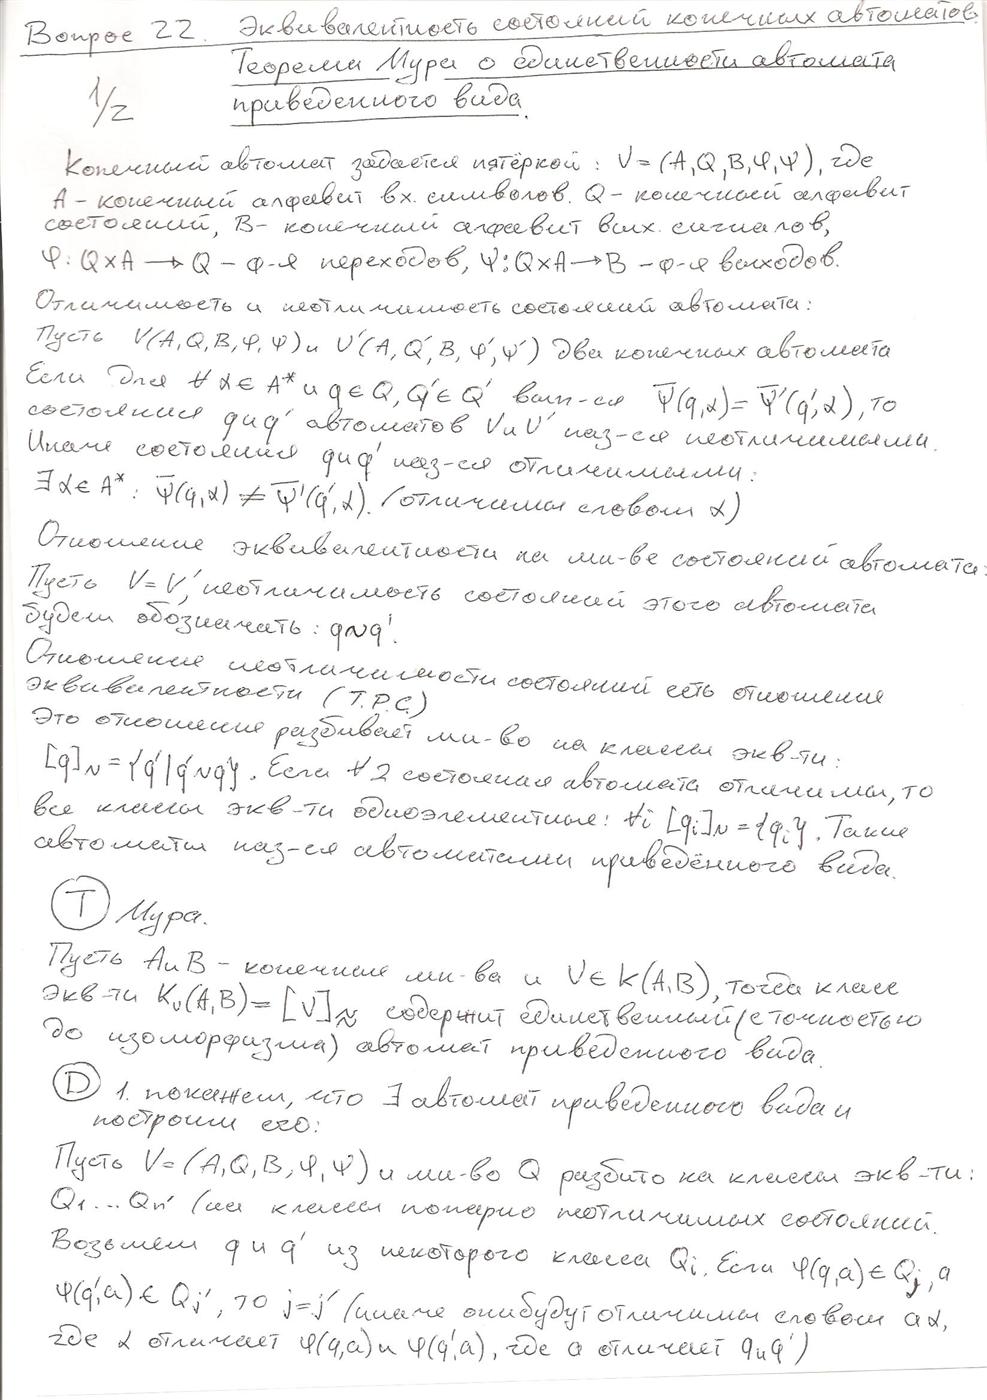 Вопрос 22. Эквивалентность состояний конечных автоматов.
Теорема Мура о единственности автомата
приведенного вида.
1/2
Конечный автомат задаётся пятёркой: V = (A, Q, B, φ, ψ), где
A - конечный алфавит вх. символов. Q - конечный алфавит
состояний, B - конечный алфавит вых. сигналов,
φ: Q×A → Q - ф-я переходов, ψ: Q×A → B - ф-я выходов.
Отличимость и неотличимость состояний автомата:
Пусть V(A, Q, B, φ, ψ) и V'(A, Q', B, φ', ψ') два конечных автомата
Если для ∀ α ∈ A* и q ∈ Q, q' ∈ Q' вып-ся ψ̅(q, α) = ψ̅'(q', α), то
состояния q и q' автоматов V и V' наз-ся неотличимыми.
Иначе состояния q и q' наз-ся отличимыми:
∃ α ∈ A*: ψ̅(q, α) ≠ ψ̅'(q', α). (отличимы словом α)
Отношение эквивалентности на мн-ве состояний автомата:
Пусть V = V', неотличимость состояний этого автомата
будем обозначать: q~q'.
Отношение неотличимости состояний есть отношение
эквивалентности (Т.Р.С.)
Это отношение разбивает мн-во на классы экв-ти:
[q]~ = {q' | q'~q}. Если ∀ 2 состояния автомата отличимы, то
все классы экв-ти одноэлементные: ∀i [qi]~ = {qi}. Такие
автоматы наз-ся автоматами приведённого вида.
Т Мура.
Пусть A и B - конечные мн-ва и V ∈ K(A, B), тогда класс
экв-ти Kv(A, B) = [V]≈ содержит единственный (с точностью
до изоморфизма) автомат приведенного вида.
D 1. покажем, что ∃ автомат приведенного вида и
построим его:
Пусть V = (A, Q, B, φ, ψ) и мн-во Q разбито на классы экв-ти:
Q1 ... Qn (на классы попарно неотличимых состояний.
Возьмем q и q' из некоторого класса Qi. Если φ(q, a) ∈ Qj, а
φ(q', a) ∈ Qj', то j = j' (иначе они будут отличимы словом aα,
где α отличает φ(q, a) и φ(q', a), где a отличает q и q')